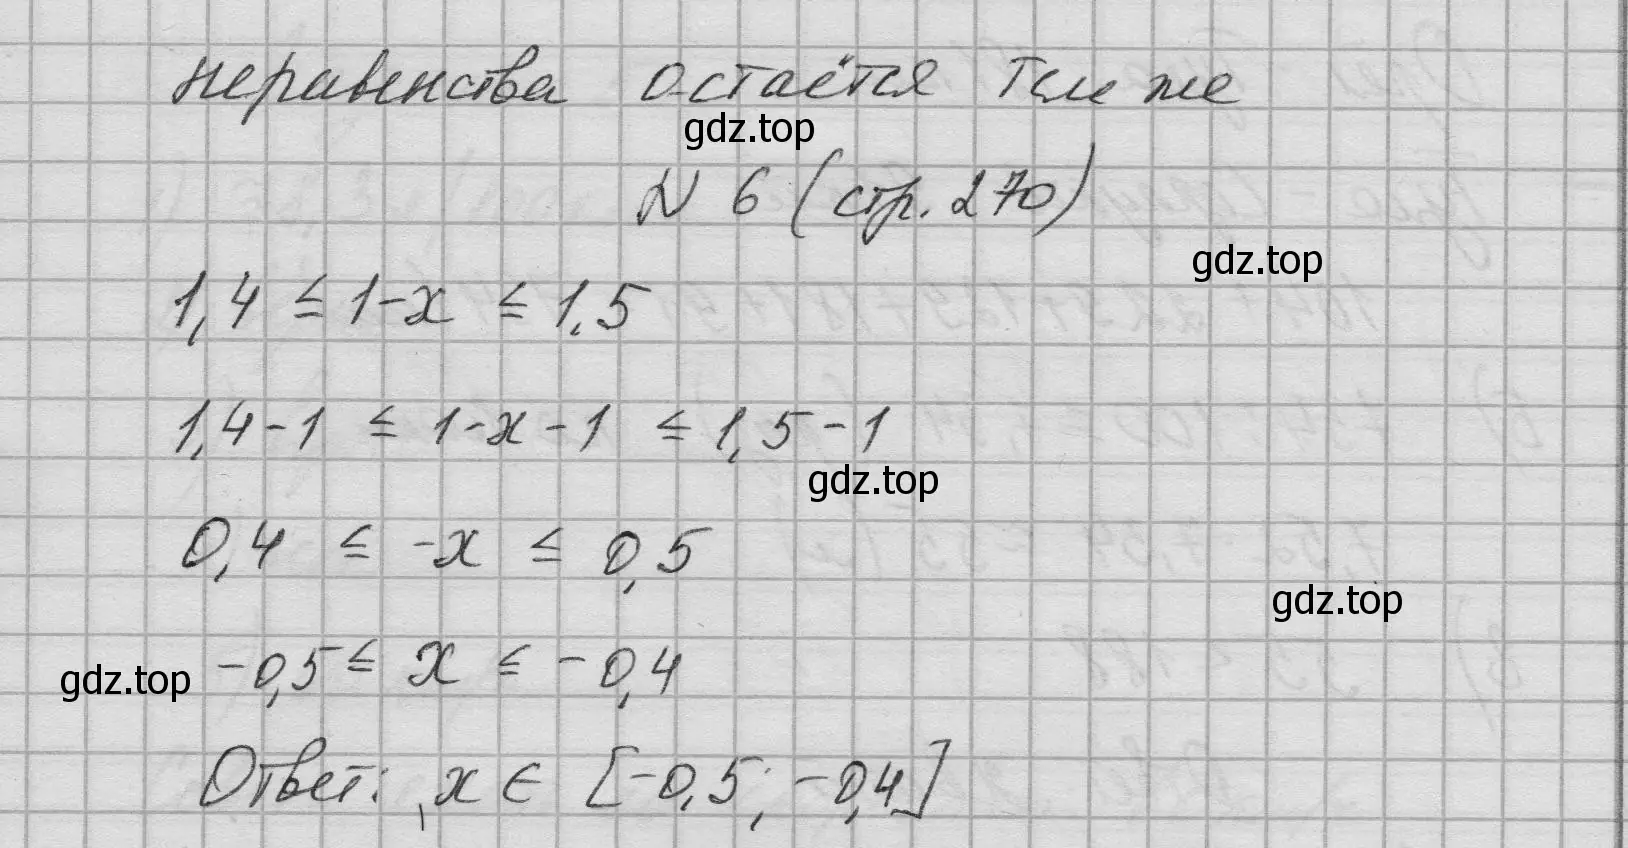 неравенства остаётся тем же
gdz.top
N 6 (стр. 270)
gdz.top
1,4 ≤ 1-x ≤ 1,5
1,4-1 ≤ 1-x-1 ≤ 1,5-1
gdz.top
0,4 ≤ -x ≤ 0,5
gdz.top
-0,5 ≤ x ≤ -0,4
gdz.top
Ответ: x ∈ [-0,5; -0,4]